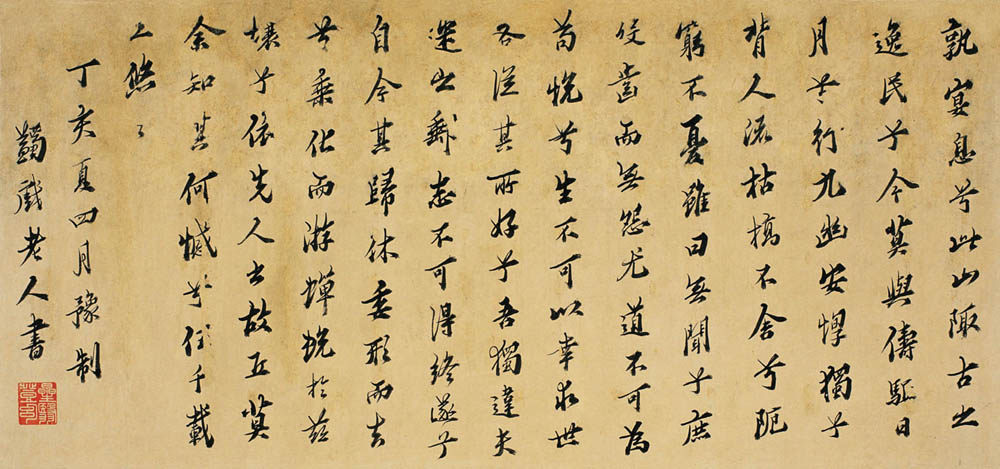 孰宴息兮此山陬古之
逸民兮今莫與儔駈日
月兮行九幽安惸獨兮
背人流枯槁不舍兮阨
窮不憂雖曰無聞兮庶
沒齒而無怨尤道不可為
苟悅兮生不可以幸求世
各從其所好兮吾獨違夫
迷之志不可得終遂兮
自今其歸休委形而去
兮乘化而游蟬蛻於茲
壤兮依先人之故丘莫
余知其何憾兮任千載
之悠々
丁亥夏四月豫制
蠲戲老人書